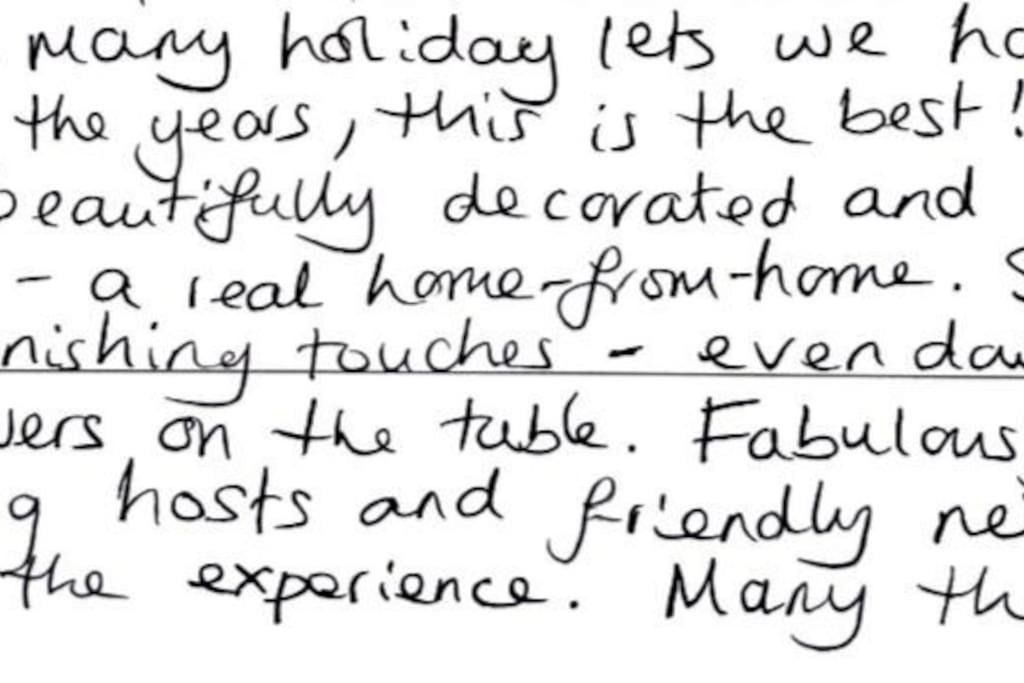 Many holiday lets we ha
the years, this is the best!
beautifully decorated and
- a real home-from-home. S
nishing touches - even dow
vers on the table. Fabulous
g hosts and friendly nei
the experience. Many th